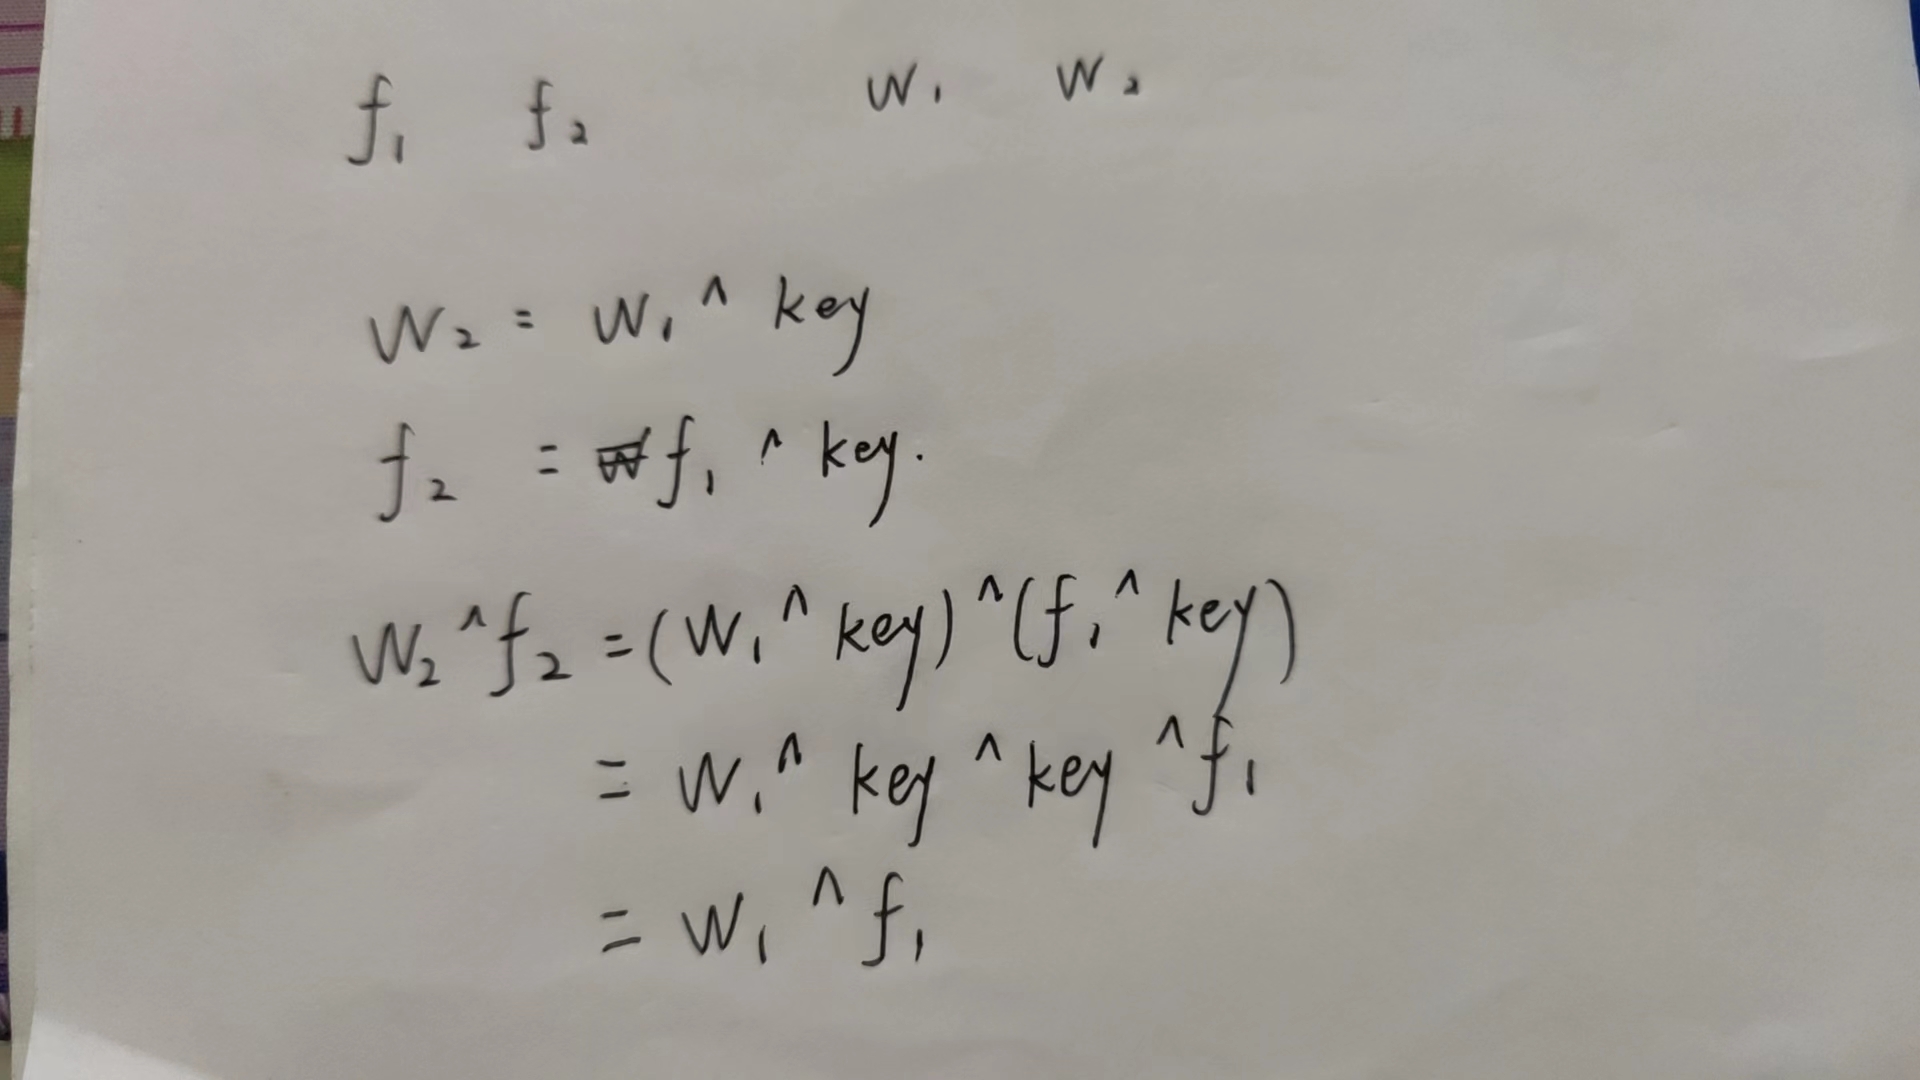 f₁ f₂ W₁ W₂
W₂ = W₁ ^ key
f₂ = f₁ ^ key.
W₂ ^ f₂ = (W₁ ^ key) ^ (f₁ ^ key)
= W₁ ^ key ^ key ^ f₁
= W₁ ^ f₁